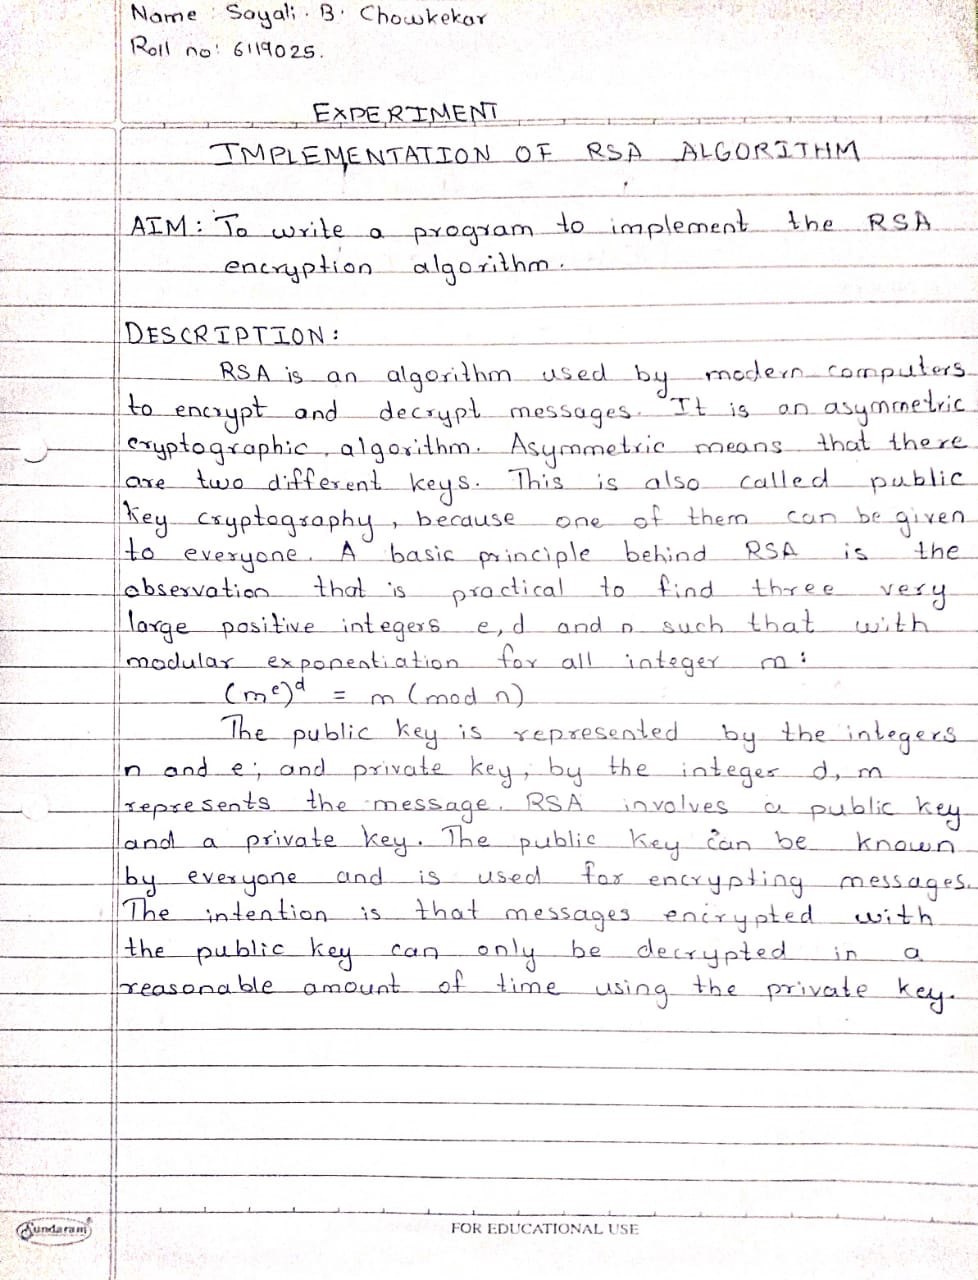 Name : Sayali. B. Chowkekar
Roll no: 6119025.
EXPERIMENT
IMPLEMENTATION OF RSA ALGORITHM
AIM: To write a program to implement the RSA
encryption algorithm.
DESCRIPTION:
RSA is an algorithm used by modern computers
to encrypt and decrypt messages. It is an asymmetric
cryptographic algorithm. Asymmetric means that there
are two different keys. This is also called public
key cryptography, because one of them can be given
to everyone. A basic principle behind RSA is the
observation that is practical to find three very
large positive integers e, d and n such that with
modular exponentiation for all integer m:
(m^e)^d = m (mod n)
The public key is represented by the integers
n and e; and private key, by the integer d, m
represents the message. RSA involves a public key
and a private key. The public key can be known
by everyone and is used for encrypting messages.
The intention is that messages encrypted with
the public key can only be decrypted in a
reasonable amount of time using the private key.
Sundaram
FOR EDUCATIONAL USE